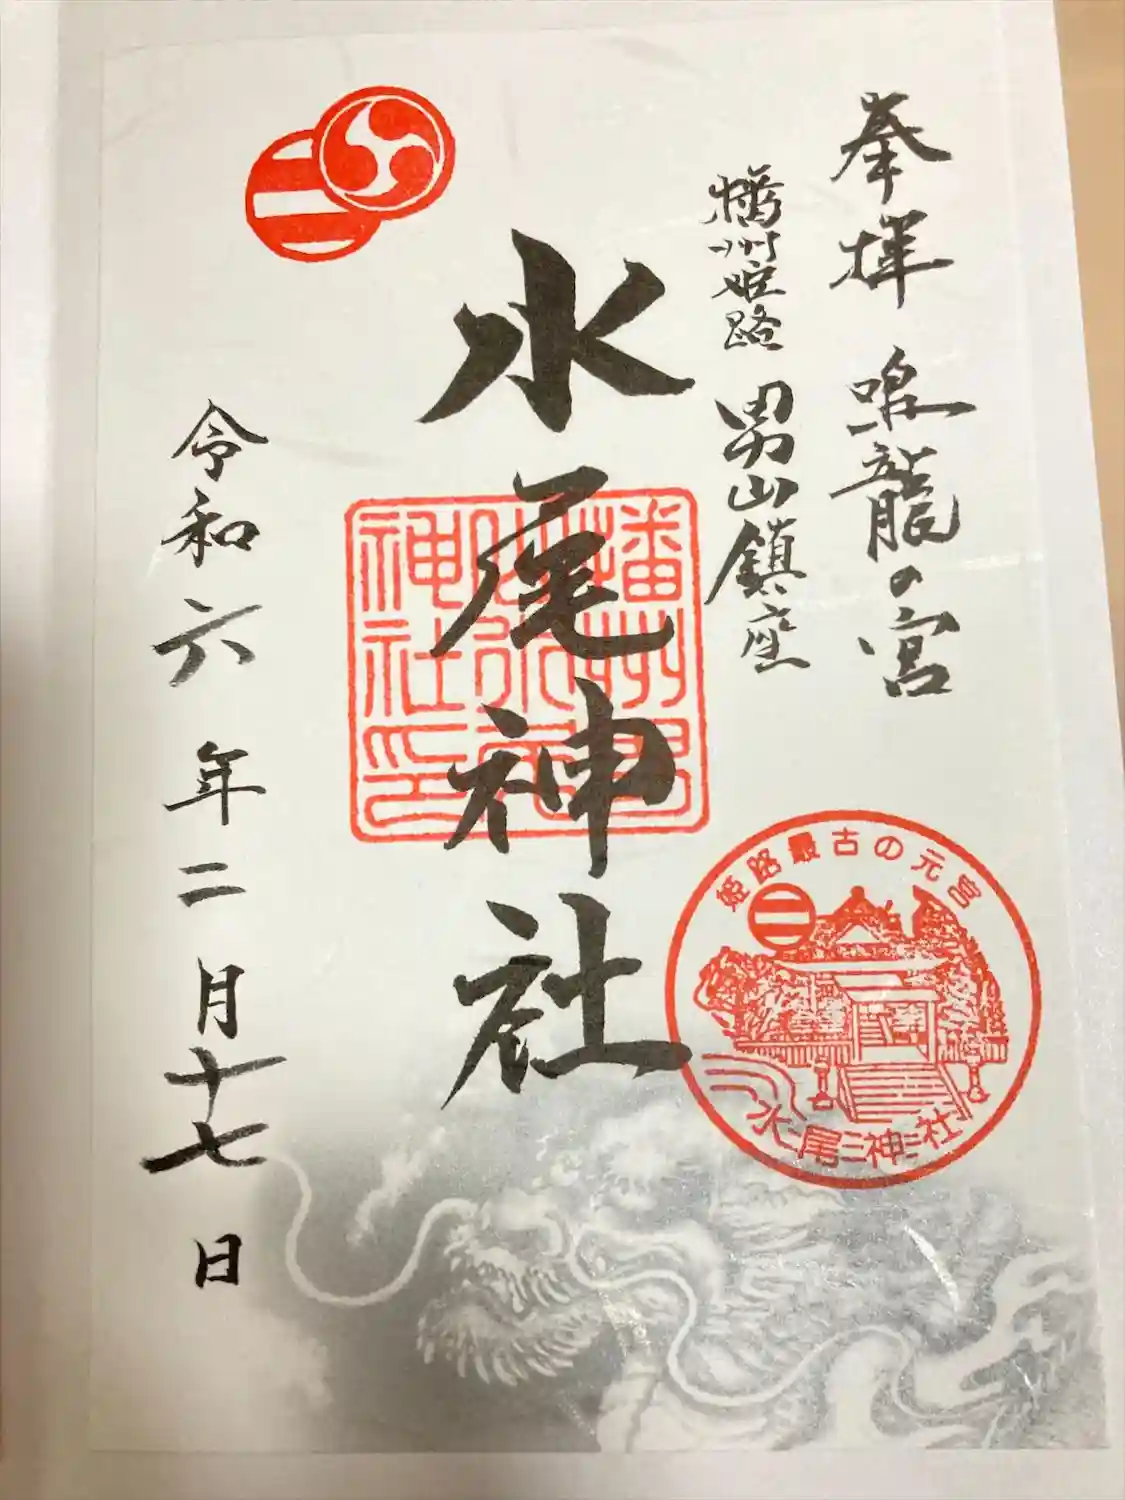 奉拝 鳴龍の宮
播州姫路 男山鎮座
水尾神社
令和六年二月十七日
播州男
山水尾
神社印
姫路最古の元宮
水尾神社